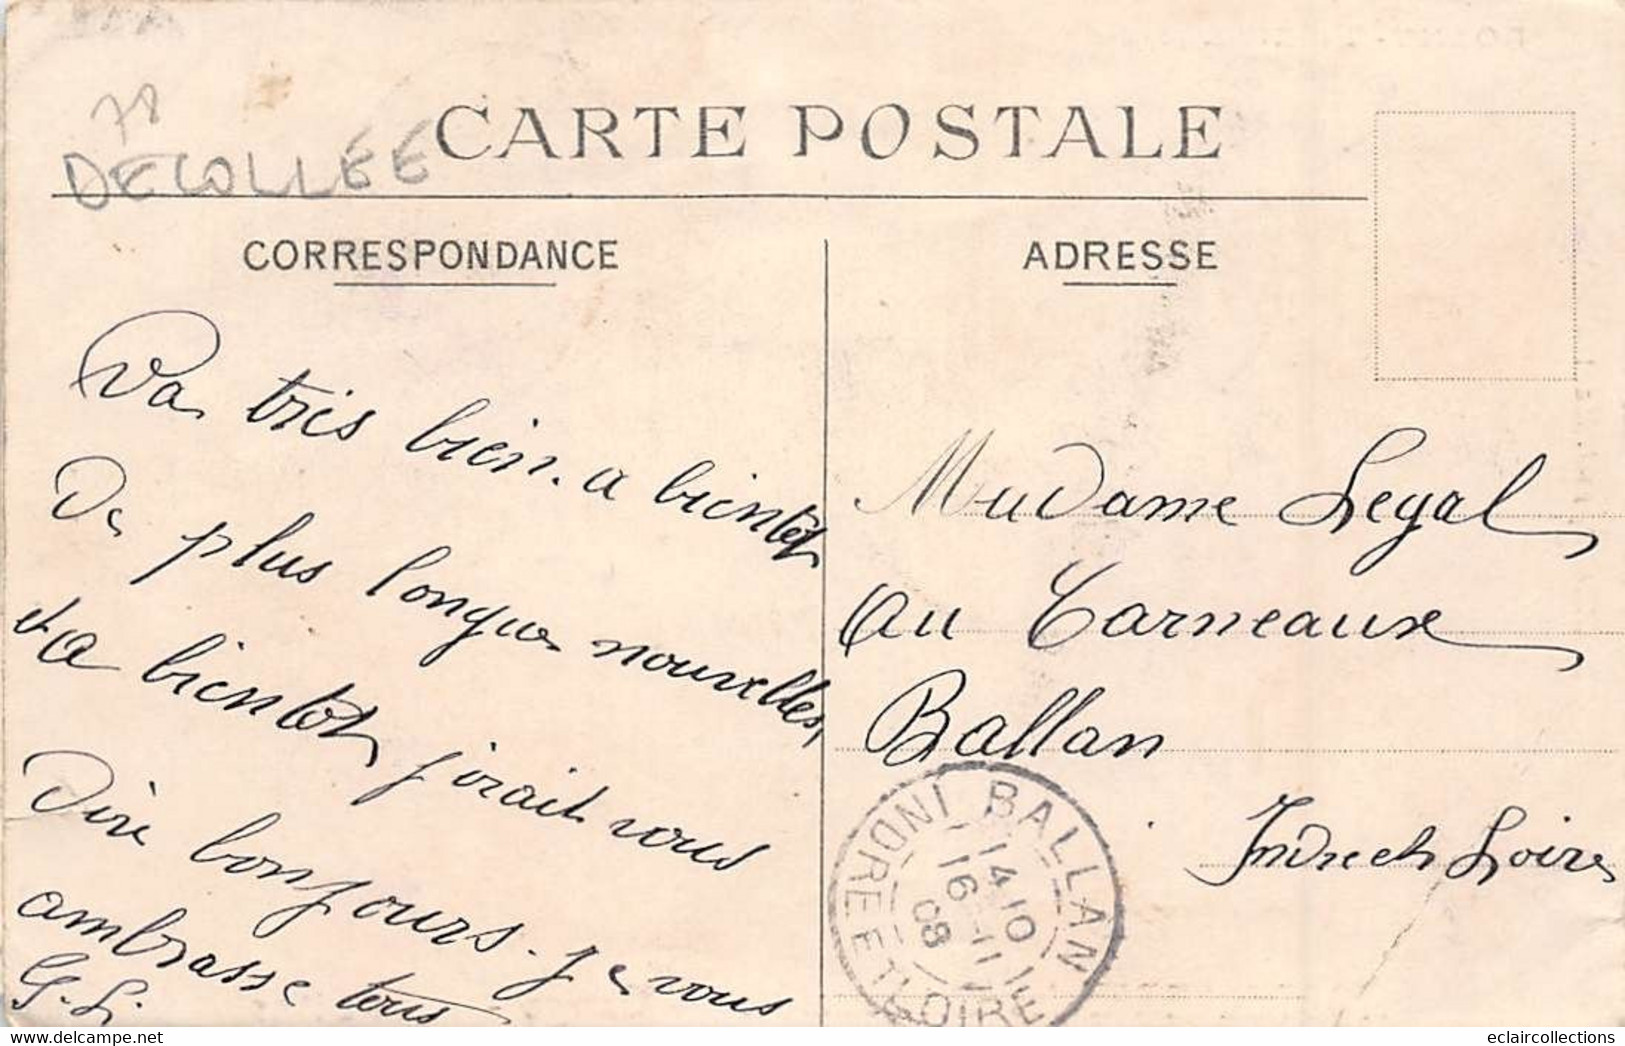 78
DECOLLÉE
CARTE POSTALE
CORRESPONDANCE
Va très bien. a bientot
De plus longue nouvelles,
et a bientot j'irait vous
Dire bonjours. je vous
ambrasse tous
G. L.
ADRESSE
Madame Legal
au Carneaux
Ballan
Indre et Loire
BALLAN
INDRE ET LOIRE
14 10
16 - 11
08
eclaircollections